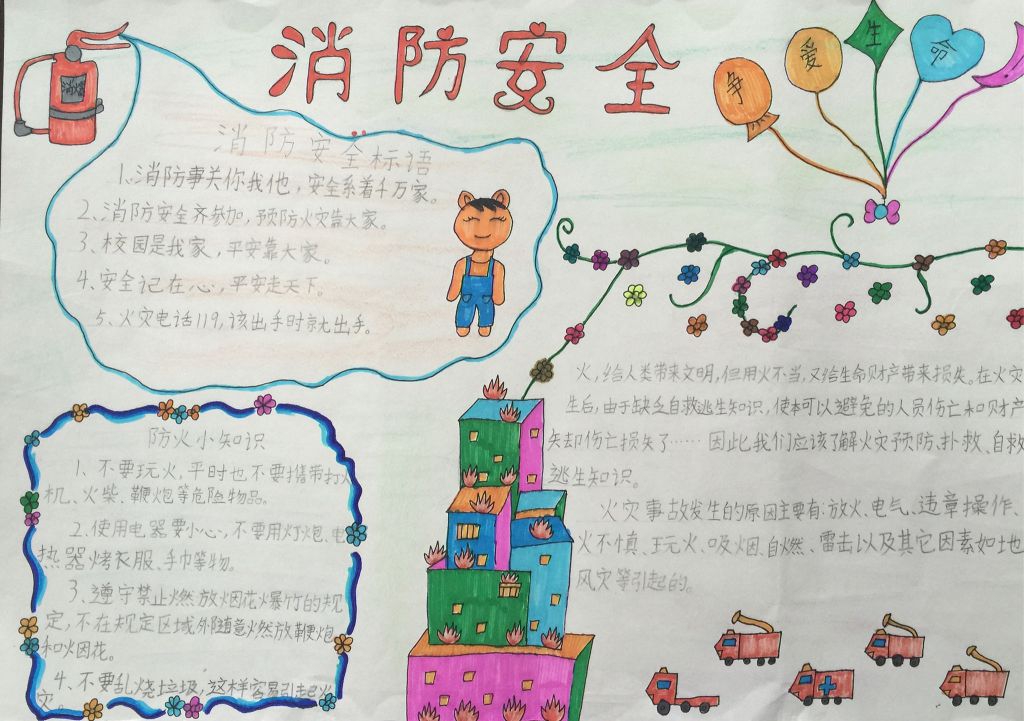 消防安全
消烟
争
爱
生
命
消防安全标语
1.消防事关你我他，安全系着千万家。
2、消防安全齐参加，预防火灾靠大家。
3、校园是我家，平安靠大家。
4、安全记在心，平安走天下。
5、火灾电话119，该出手时就出手。
防火小知识
1、不要玩火，平时也不要携带打火
机、火柴、鞭炮等危险物品。
2、使用电器要小心，不要用灯炮、电
热器烤衣服、手巾等物。
3、遵守禁止燃放烟花爆竹的规
定，不在规定区域外随意燃放鞭炮
和烟花。
4、不要乱烧垃圾，这样容易引起火
灾。
火，给人类带来文明，但用火不当，又给生命财产带来损失。在火灾
生后，由于缺乏自救逃生知识，使本可以避免的人员伤亡和财产
失却伤亡损失了……因此我们应该了解火灾预防、扑救、自救
逃生知识。
火灾事故发生的原因主要有：放火、电气、违章操作、
火不慎、玩火、吸烟、自燃、雷击以及其它因素如地
风灾等引起的。